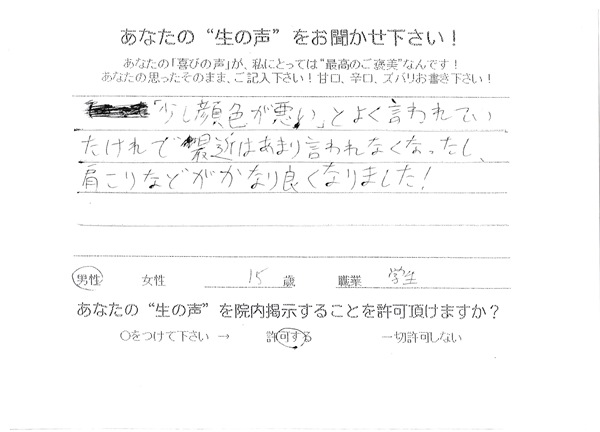 あなたの“生の声”をお聞かせ下さい！
あなたの「喜びの声」が、私にとっては“最高のご褒美”なんです！
あなたの思ったそのまま、ご記入下さい！甘口、辛口、ズバリお書き下さい！
「少し顔色が悪い」とよく言われてい
たけれで最近はあまり言われなくなったし、
肩こりなどがかなり良くなりました！
男性 女性 15 歳 職業 学生
あなたの“生の声”を院内掲示することを許可頂けますか？
○をつけて下さい → 許可する 一切許可しない